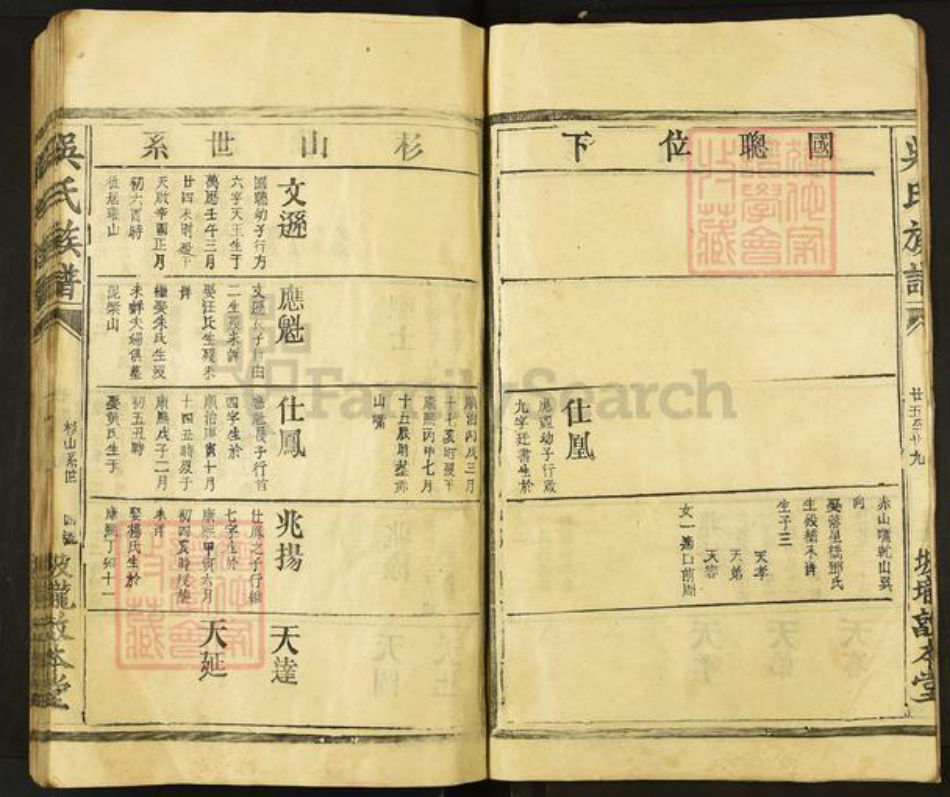 國聰位下
赤山嘴乾山巽
向
娶常里橋鄧氏
生歿葬未詳
生子三
天孝
天弟
天容
仕凰
應魁幼子行
九字廷書生於
順治丙戌三月
十七亥時歿于
康熙丙申七月
十五辰時葬赤
山嘴
吳氏族譜
廿五至廿九
杉山世系
文遜
國聰幼子行方
六字天王生于
萬厯壬午三月
廿四未時歿于
天啟帝國正月
初六酉時
應魁
文遜之子行由
二生歿未詳
娶汪氏生歿未
詳
繼娶朱氏生歿
未詳夫婦俱塟
泥鰍山
仕鳳
應魁長子行首
四字生於
順治庚寅十月
十四丑時歿于
康熙戊子二月
初五丑時
娶黃氏生于
兆揚
仕鳳之子行
七字生於
康熙甲寅六月
初四亥時歿葬
未詳
娶楊氏生於
康熙丁卯十一
天達
天延
吳氏族譜
杉山系世
坡瓏敦本堂
FamilySearch